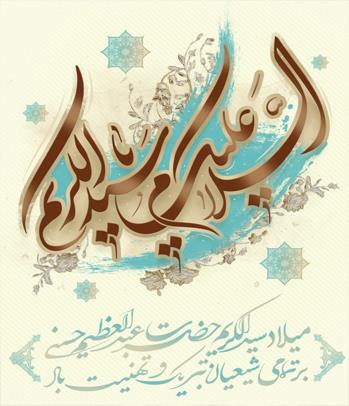 السلام علیک یا سید الکریم
میلاد سید الکریم حضرت عبدالعظیم حسنی
بر تمامی شیعیان تبریک و تهنیت باد